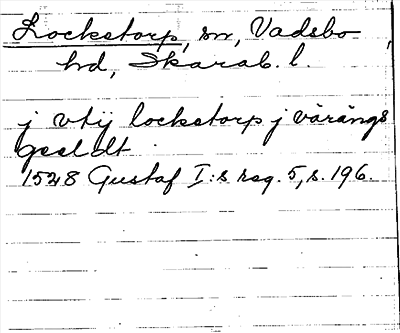 Lockstorp, sn, Vadsbo
hd, Skarab. l.
j vtij lockstorp j vårångs
1528 Gustaf I:s reg. 5, s. 196.